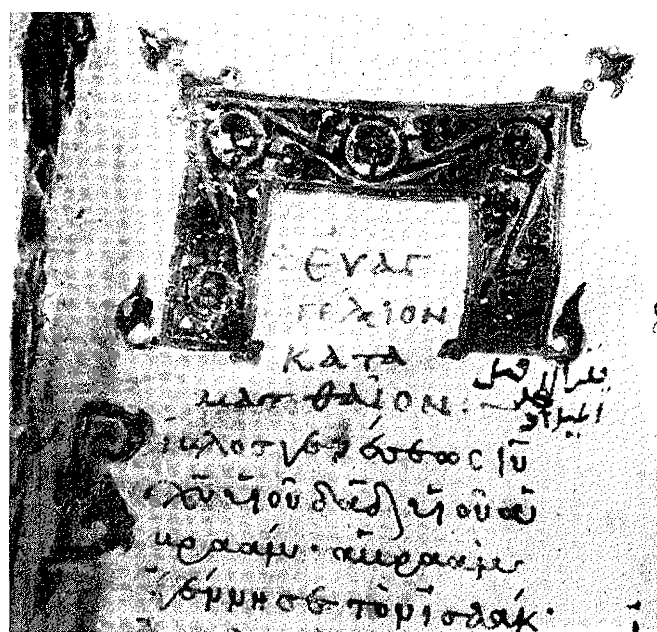 ΕΥΑΓ
ΓΕΛΙΟΝ
ΚΑΤΑ
ΜΑΤΘΑΙΟΝ:
Βίβλος γενέσεως ιῦ
χῦ υἱοῦ δᾱδ υἱοῦ ἀ
βραάμ· ἀβραὰμ
ἐγέννησε τὸν ἰσαάκ·